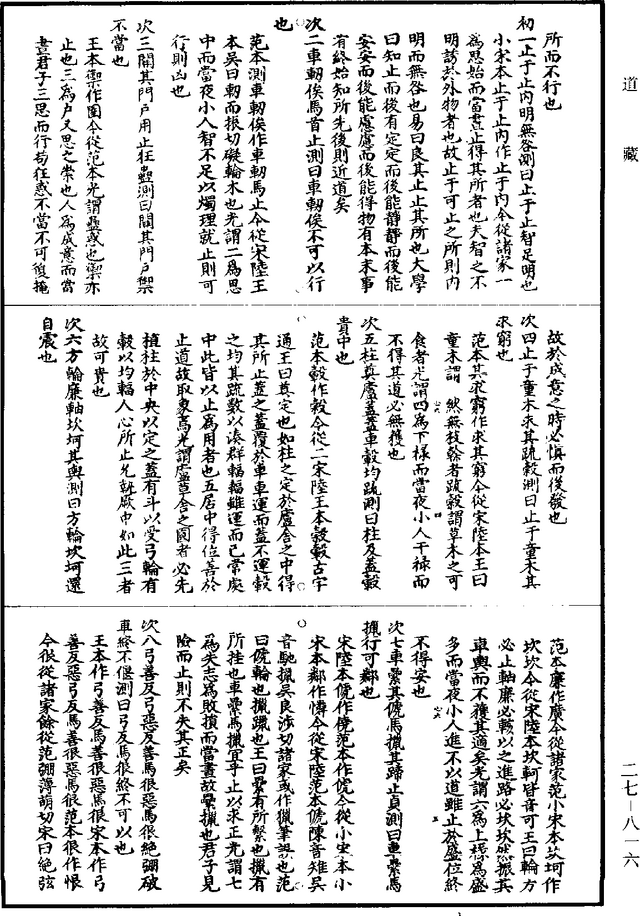 道藏
所而不行也
初一止于止內明無咎測曰止于止智足明也
小宋本止于止內作止于內今從諸家一
為思始而當晝止得其所者也夫智之不
明誘於外物者也故止于可止之所則內
明而無咎也易曰艮其止止其所也大學
曰知止而後有定定而後能靜靜而後能
安安而後能慮慮而後能得物有本末事
有終始知所先後則近道矣
次二車軔俟馬酋止測曰車軔俟不可以行
也
范本測車軔俟作車軔馬止今從宋陸王
本吳曰軔而振切礙輪木也光謂二為思
中而當夜小人智不足以燭理就止則可
行則凶也
次三關其門戶用止狂蠱測曰關其門戶禦
不當也
王本禦作圉今從范本光謂蠱惑也禦亦
止也三為戶又思之崇也人為成意而當
晝君子三思而行苟狂惑不當不可復掩
故於成意之時必慎而後發也
次四止于童木求其疏穀測曰止于童木其
求窮也
范本其求窮作求其窮今從宋陸本王曰
童木謂 然無枝幹者疏穀謂草木之可
食者光謂四為下祿而當夜小人干祿而
不得其道必無獲也
次五柱奠廬蓋蓋車轂均疏測曰柱及蓋轂
貴中也
范本轂作穀今從二宋陸王本轂穀古字
通王曰奠定也如柱之定於廬舍之中得
其所止蓋之蓋覆於車車運而蓋不運轂
之均其疏數以湊群輻輻雖運而己常處
中此皆以止為用者也五居中得位善於
止道故取象焉光謂廬草舍之圓者必先
植柱於中央以定之蓋有斗以受弓輪有
轂以均輻人心所止允執厥中如此三者
故可貴也
次六方輪廉軸坎坷其輿測曰方輪坎坷還
自震也
范本廉作廣今從諸家范小宋本坎坷作
坎坎今從宋陸本坎軻皆音可王曰輪方
必止軸廉必轢以之進路必坎坎然振其
車輿而不獲其適矣光謂六為上祿為盛
多而當夜小人進不以道雖止於盛位終
不得安也
次七車纍其俿馬獵其蹄止貞測曰車纍馬
獵行可鄰也
宋陸本俿作傂范本作俿今從小宋本小
宋本鄰作憐今從宋陸范本俿陳音雉吳
音馳獵吳良涉切諸家或作獵筆誤也范
曰俿輪也獵躐也王曰纍有所繫也獵有
所挂也車纍馬獵宜乎止以求正光謂七
為失志為敗損而當晝故纍獵也君子見
險而止則不失其正矣
次八弓善反弓惡反善馬很惡馬很絕弸破
車終不偃測曰弓反馬很終不可以也
王本作弓善反馬善很惡馬很宋本作弓
善反惡弓反馬善很惡馬很范本很作恨
今很從諸家餘從范弸薄萌切宋曰絕弦
二七—八一六